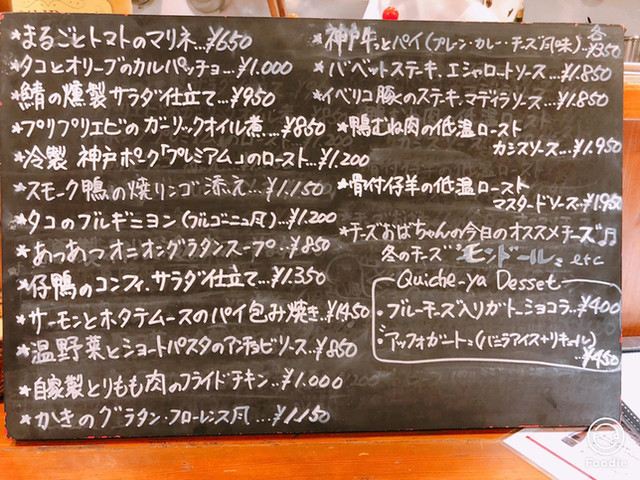 *まるごとトマトのマリネ...¥650
*タコとオリーブのカルパッチョ...¥1.000
*鯖の燻製サラダ仕立て...¥950
*プリプリエビのガーリックオイル煮...¥850
*冷製 神戸ポーク「プレミアム」のロースト...¥1.200
*スモーク鴨の焼リンゴ添え...¥1.150
*タコのブルギニヨン(ブルゴーニュ風)...¥1.200
*あつあつオニオングラタンスープ...¥850
*仔鴨のコンフィ.サラダ仕立て...¥1.350
*サーモンとホタテムースのパイ包み焼き...¥1450
*温野菜とショートパスタのアンチョビソース...¥850
*自家製とりもも肉のフライドチキン...¥1.000
*かきのグラタン・フローレンス風...¥1.150
*神戸牛っとパイ(プレーン・カレー・チーズ風味)...各¥350
*バベットステーキ.エシャロートソース...¥1.850
*イベリコ豚くのステーキ.マディラソース...¥1.850
*鴨むね肉の低温ロースト
カシスソース...¥1.950
*骨付仔羊の低温ロースト
マスタードソース...¥1950
*チーズおばちゃんの今日のオススメチーズ♬
冬のチーズ"モンドール" etc
Quiche-ya Desset
・ブルーチーズ入りガトーショコラ...¥400
・アッフォガート:(バニラアイス+リキュール)
...¥450
Foodie